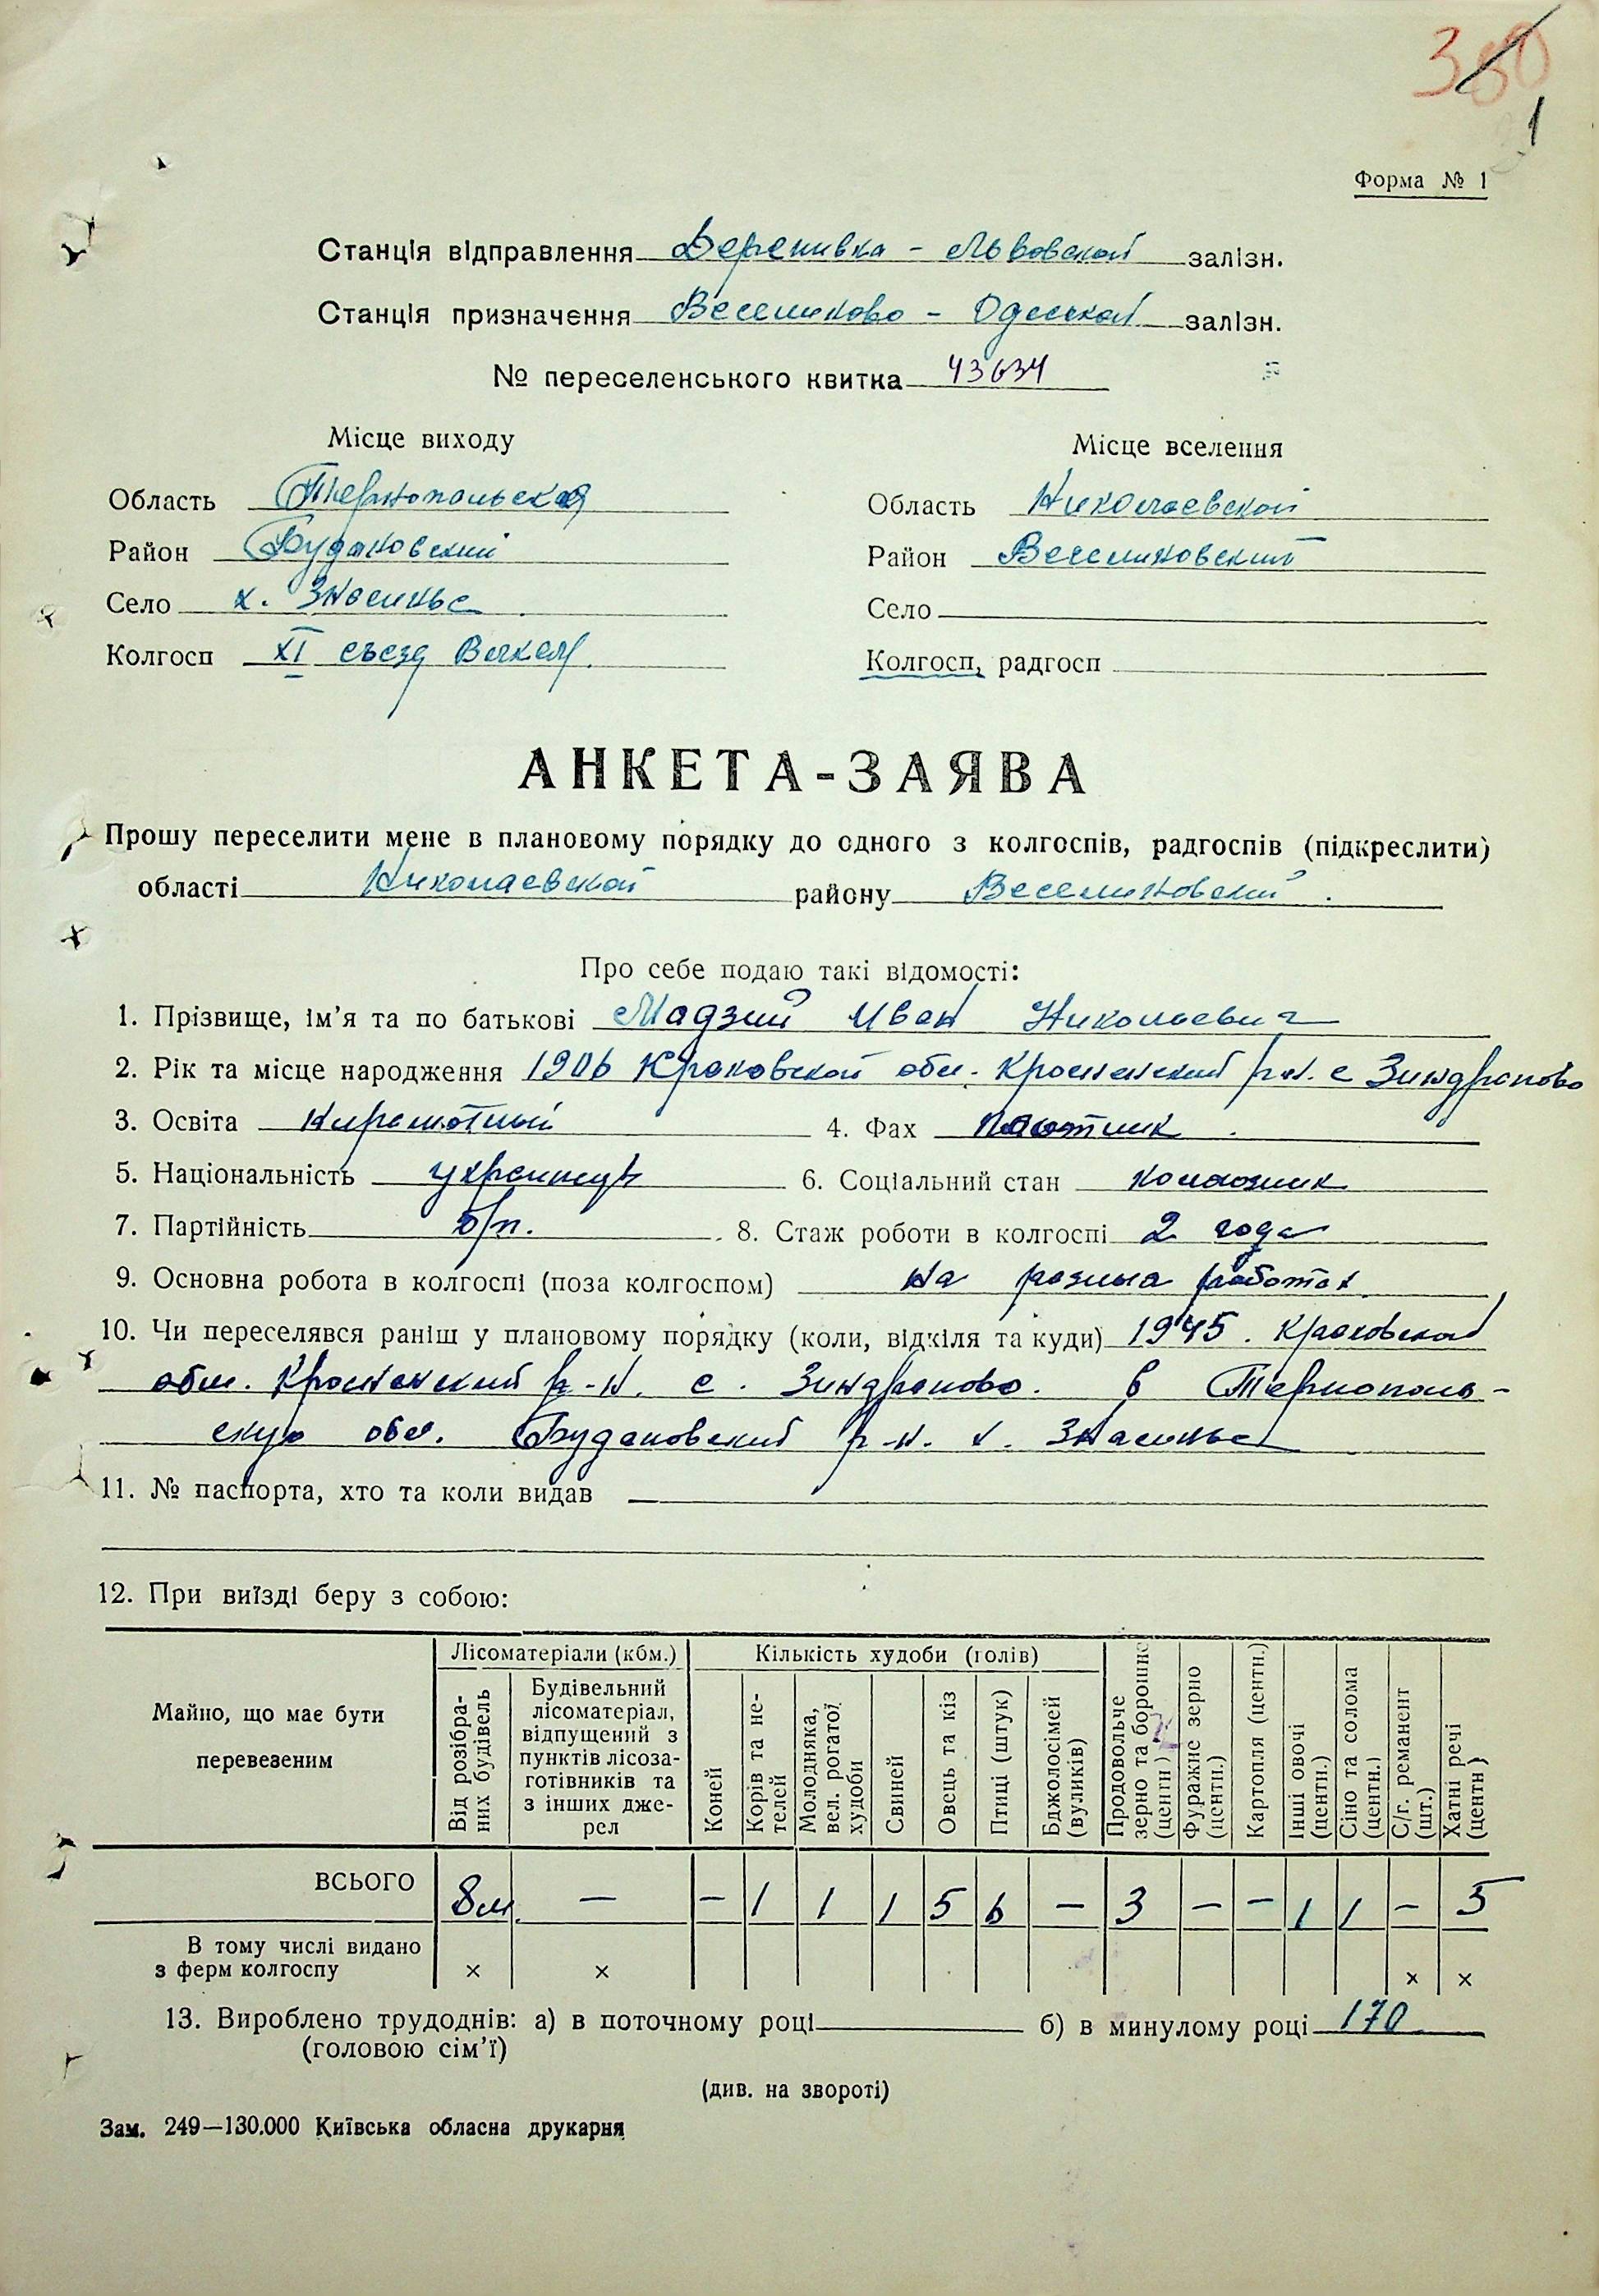 380
1
Форма № 1
Станція відправлення Деренивка - Львовской залізн.
Станція призначення Веселиново - Одесской залізн.
№ переселенського квитка 43634
Місце виходу
Місце вселення
Область Тернопольская
Область Николаевской
Район Будановский
Район Веселиновский
Село х. Знесинье
Село
Колгосп XI съезд
Колгосп, радгосп
АНКЕТА-ЗАЯВА
Прошу переселити мене в плановому порядку до одного з колгоспів, радгоспів (підкреслити)
області Николаевской району Веселиновский.
Про себе подаю такі відомості:
1. Прізвище, ім'я та по батькові Мадзий Иван Николаевич
2. Рік та місце народження 1906 Краковской обл. Кросненский р-н. с Зиндраново
3. Освіта 4. Фах плотник.
5. Національність украинец 6. Соціальний стан колхозник
7. Партійність б/п. 8. Стаж роботи в колгоспі 2 года
9. Основна робота в колгоспі (поза колгоспом) на разных работах
10. Чи переселявся раніш у плановому порядку (коли, відкіля та куди) 1945. Краковской
обл. Кросненский р-н. с. Зиндраново. в Тернополь-
скую обл. Будановский р-н. х. Знесинье
11. № паспорта, хто та коли видав
12. При виїзді беру з собою:
Майно, що має бути перевезеним
Лісоматеріали (кбм.)
Кількість худоби (голів)
Від розібраних будівель
Будівельний лісоматеріал, відпущений з пунктів лісозаготівників та з інших джерел
Коней
Корів та нетелей
Молодняка, вел. рогатої худоби
Свиней
Овець та кіз
Птиці (штук)
Бджолосімей (вуликів)
Продовольче зерно та борошно (центн)
Фуражне зерно (центн.)
Картопля (центн.)
Інші овочі (центн.)
Сіно та солома (центн.)
С/г. реманент (шт.)
Хатні речі (центн)
ВСЬОГО 8м. — – 1 1 1 5 6 – 3 – – 1 1 – 5
В тому числі видано
з ферм колгоспу × × × ×
13. Вироблено трудоднів: а) в поточному році б) в минулому році 170
(головою сім'ї)
(див. на звороті)
Зам. 249—130.000 Київська обласна друкарня